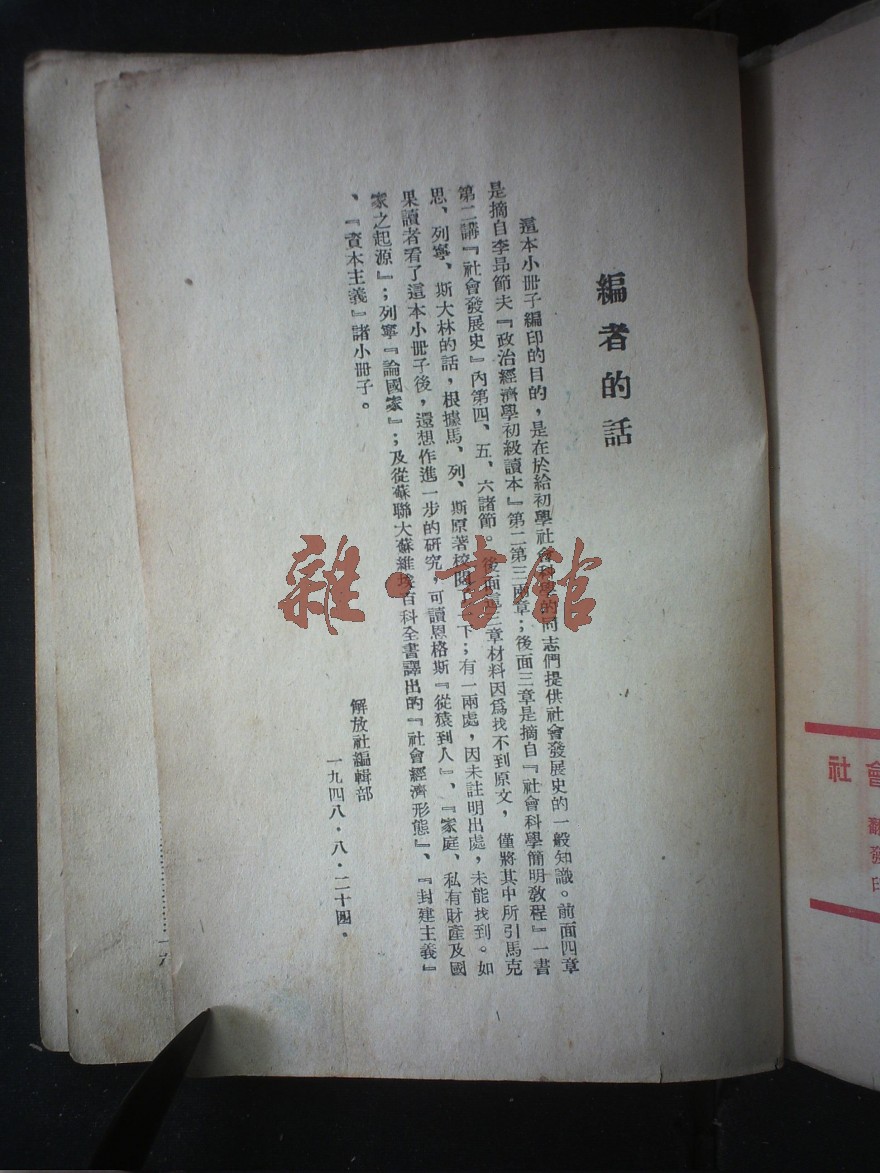 編者的話
這本小冊子編印的目的，是在於給初學社會科學的同志們提供社會發展史的一般知識。前面四章
是摘自李昂節夫『政治經濟學初級讀本』第二第三兩章；後面三章是摘自『社會科學簡明教程』一書
第二講『社會發展史』內第四、五、六諸節。後面這三章材料因爲找不到原文，僅將其中所引馬克
思、列寧、斯大林的話，根據馬、列、斯原著校閱了一下；有一兩處，因未註明出處，未能找到。如
果讀者看了這本小冊子後，還想作進一步的研究，可讀恩格斯『從猿到人』、『家庭、私有財產及國
家之起源』；列寧『論國家』；及從蘇聯大蘇維埃百科全書譯出的『社會經濟形態』、『封建主義』
、『資本主義』諸小冊子。
解放社編輯部
一九四八・八・二十四。
雜・書館
社會
翻
發
印